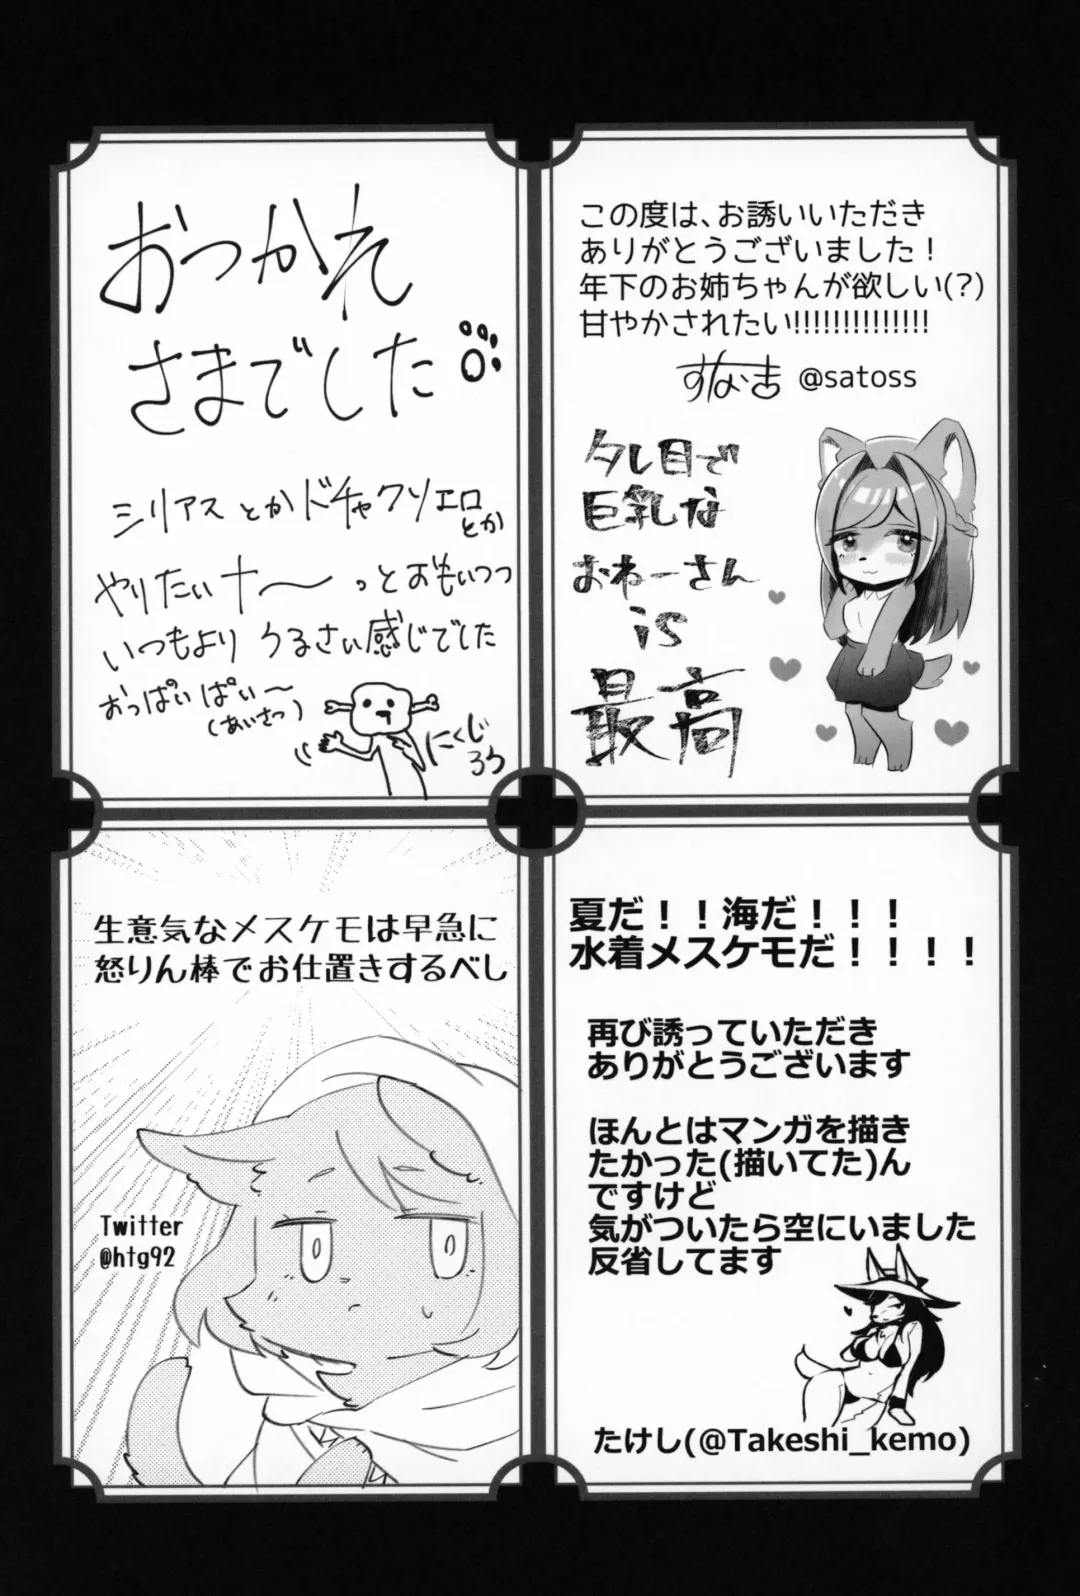 おつかれ
さまでした
シリアスとかドチャクソエロ
とか
やりたいナ〜っとおもいつつ
いつもより うるさい感じでした
おっぱいぱい〜
(あいさつ)
にくじ
ろう
この度は、お誘いいただき
ありがとうございました！
年下のお姉ちゃんが欲しい(？)
甘やかされたい!!!!!!!!!!!!!!
すな吉 @satoss
タレ目で
巨乳な
おねーさん
is
最高
生意気なメスケモは早急に
怒りん棒でお仕置きするべし
Twitter
@htg92
夏だ！！海だ！！！
水着メスケモだ！！！！
再び誘っていただき
ありがとうございます
ほんとはマンガを描き
たかった(描いてた)ん
ですけど
気がついたら空にいました
反省してます
たけし(@Takeshi_kemo)